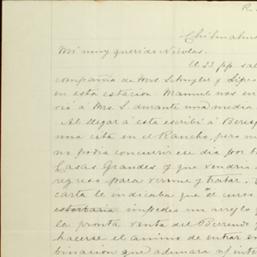 Chihuahua
Mi muy querido Nicolas.
El 23 pp. sal
compañia de Mrs Schuyler y Lopez
en esta estacion Manuel nos en
vió a Mrs S. durante una media
Al llegar á esta escribí á Beres
una está en el Rancho, pero me
no podia concurrir ese dia por te
Casas Grandes y que vendria
regreso para verme y tratar.
carta le indicaba que el curso
estorbaria impedia un arreglo y
la pronta venta del
hacerse el animo de entrar en
binacion que ademas